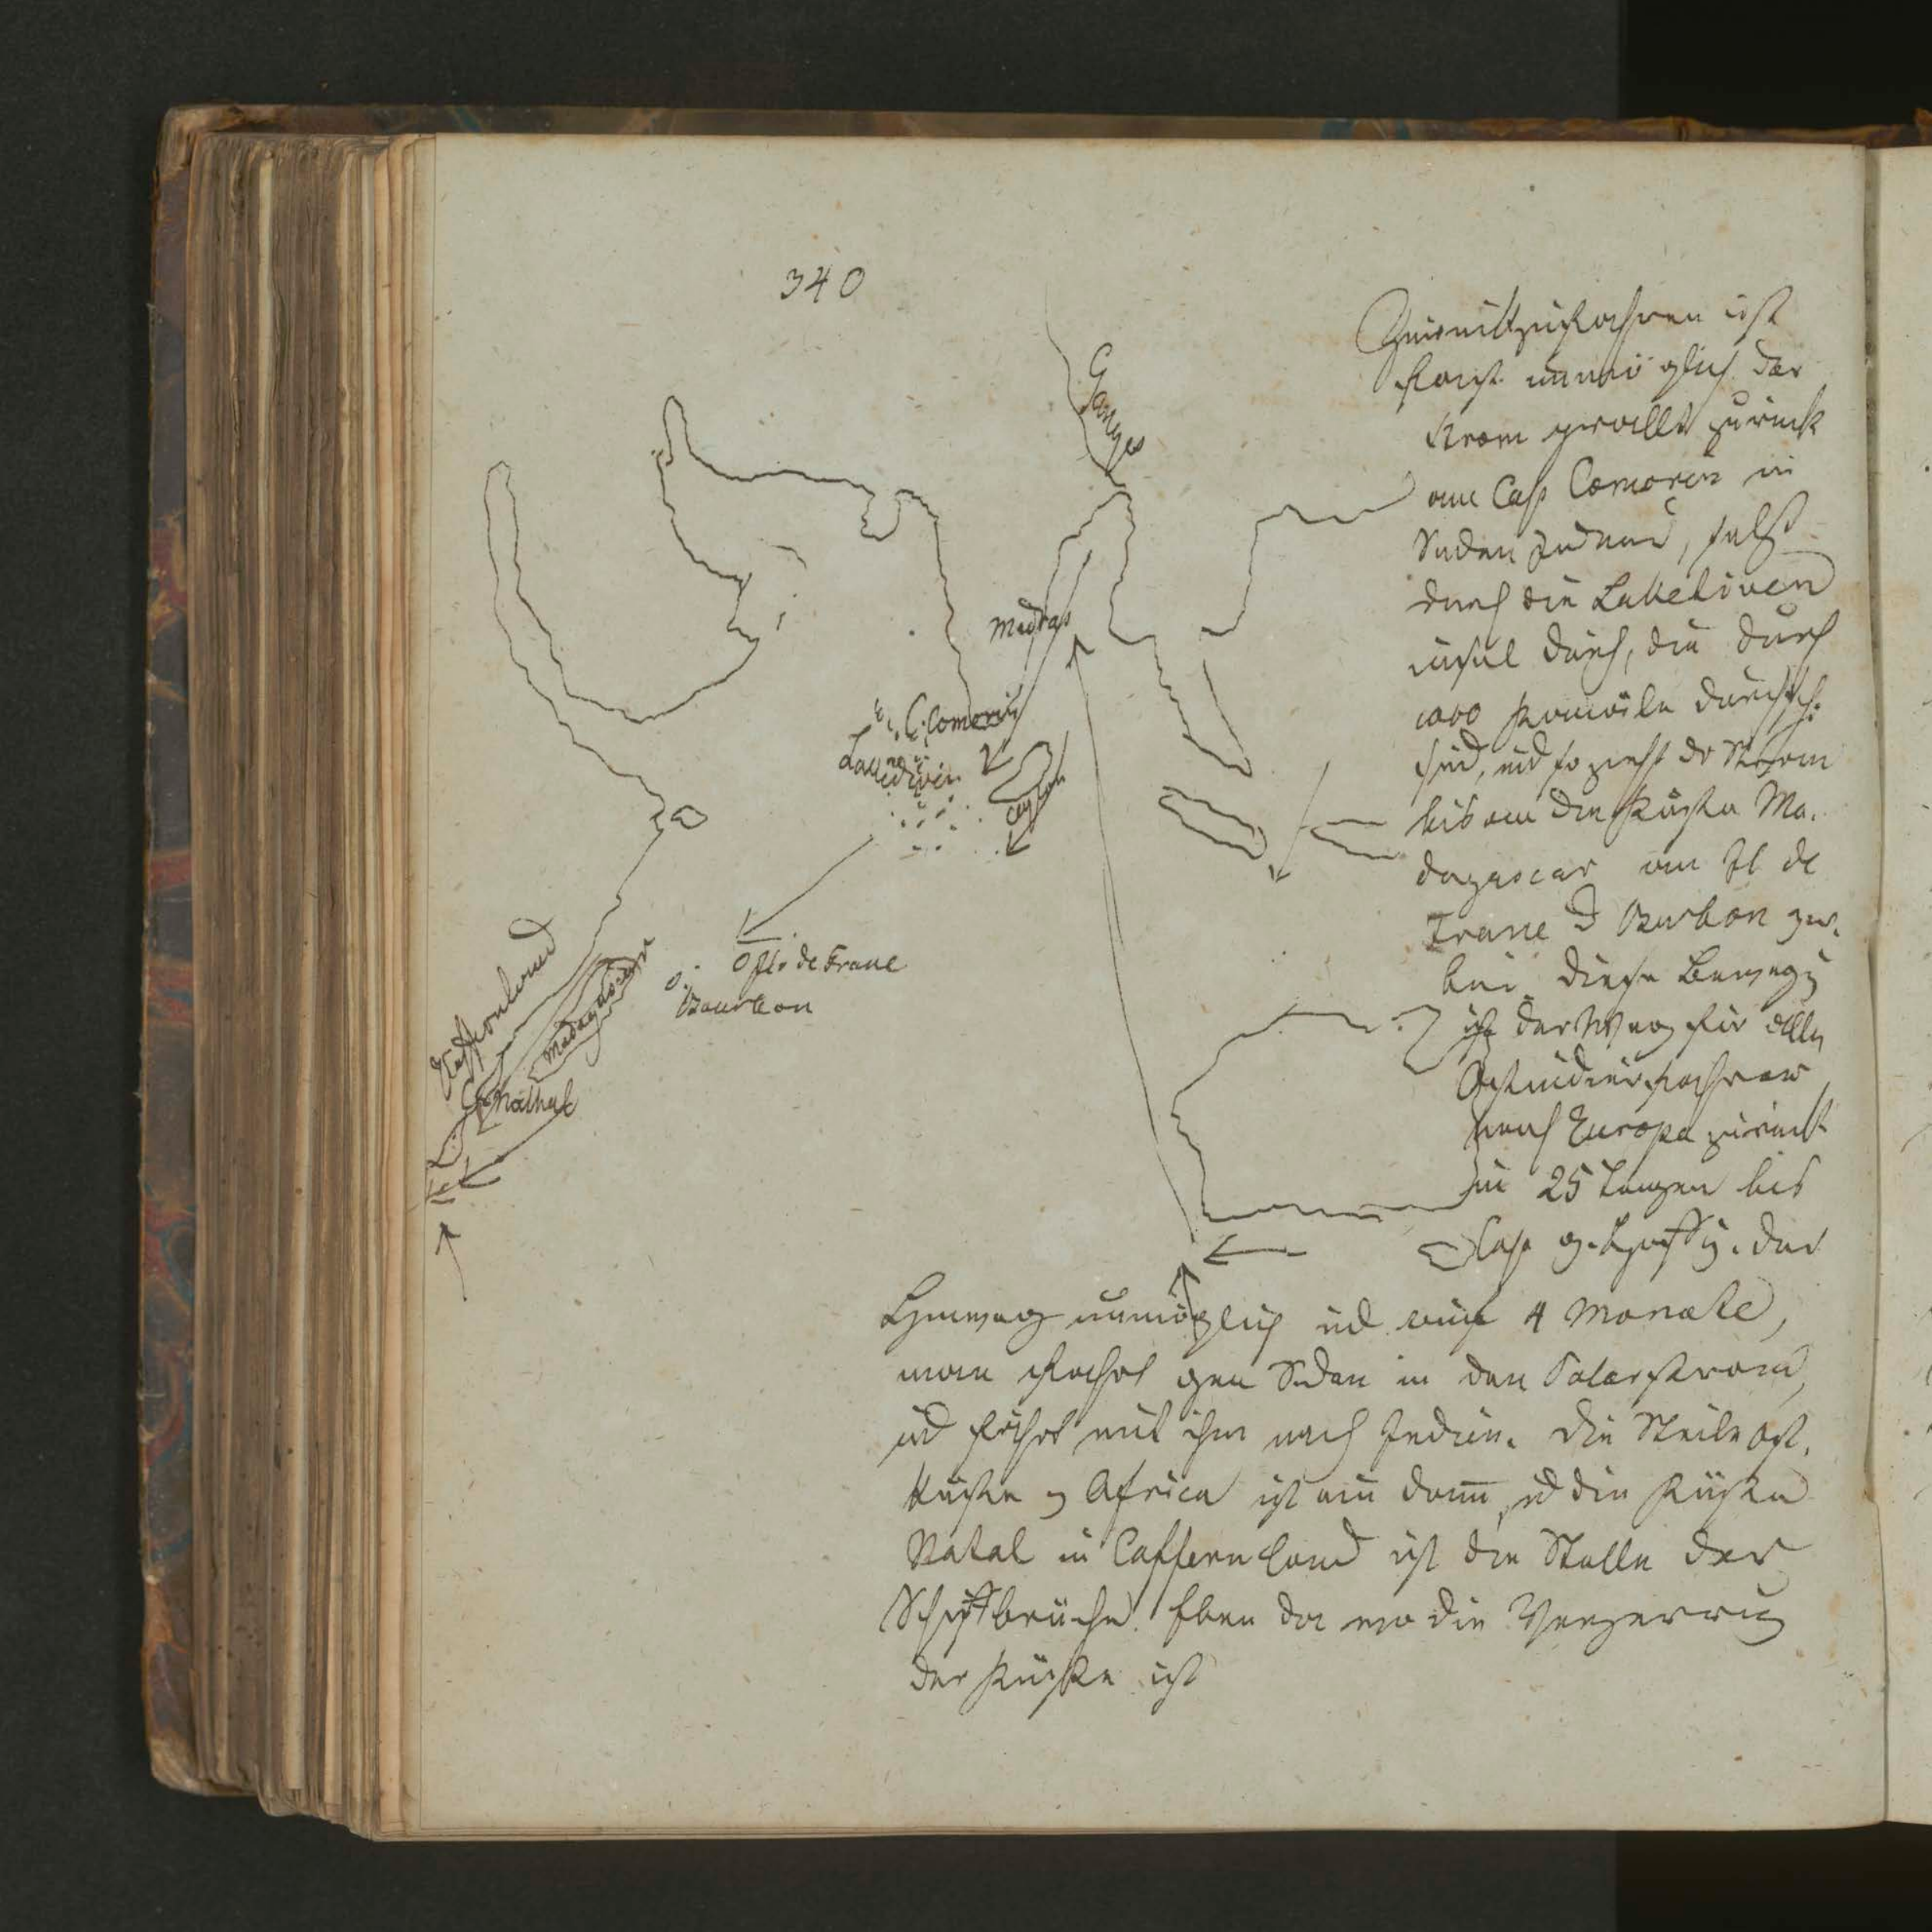 340
Ganges
Madras
C. Comorin
Lackediven
Ceylon
Isle de France
Bourbon
Madagascar
Kaffernland
C Nathal
ist
fast unmöglich der
Strom zurück
am Cap Comorin in
Süden, selbst
durch die Lakediven
insel durch, die durch
1000 Kanäle
sind, und so zieht der Strom
bis an den Küsten Ma-
dagascar am Il de
France Bourbon vor-
bei. Diese
ist der Weg für alle
Ostindienfahrer
nach Europa zurück
in 25 Tagen bis
Cap g. Hoffng. Der
Hinweg unmöglich und auf 4 Monate,
man fährt gen Süden in den Polarstrom,
und fährt mit ihm nach Indien. Die Steile Ost-
küste Africa ist ein Damm, und die Küste
Natal in Caffernland ist die Stelle der
Schiffbrüche. Eben da wo die
der Küste ist